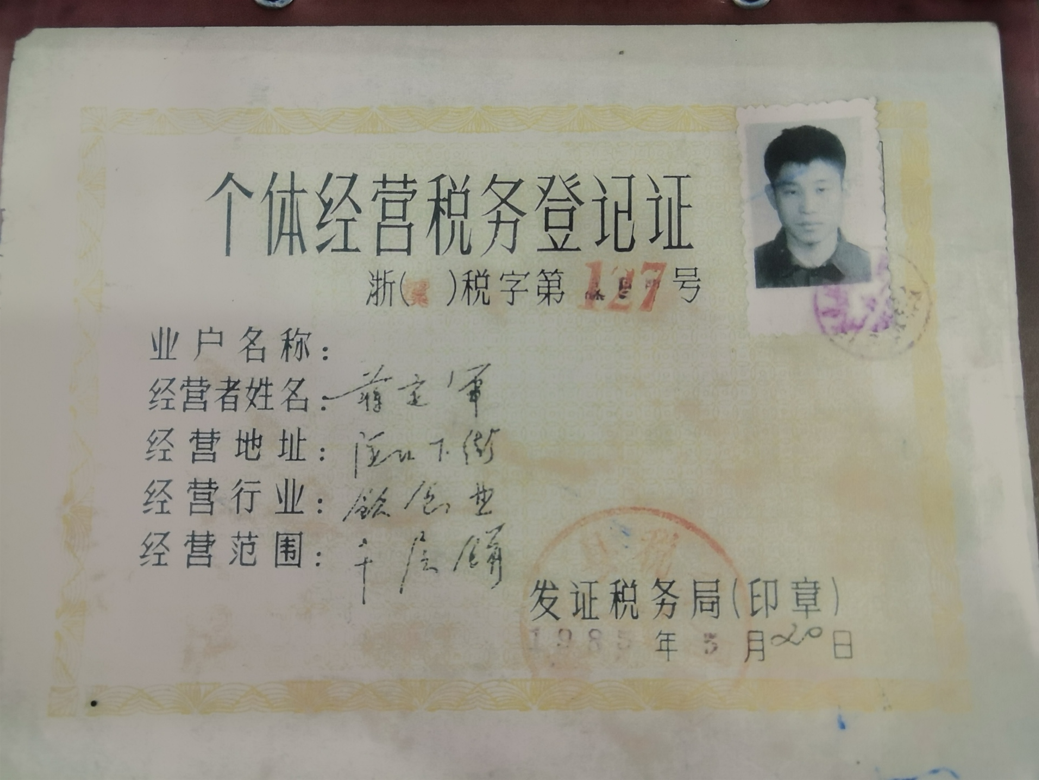 个体经营税务登记证
浙( )税字第127号
业户名称：
经营者姓名：蒋定军
经营地址：下街
经营行业：饮食业
经营范围：千层饼
发证税务局(印章)
1985年5月20日